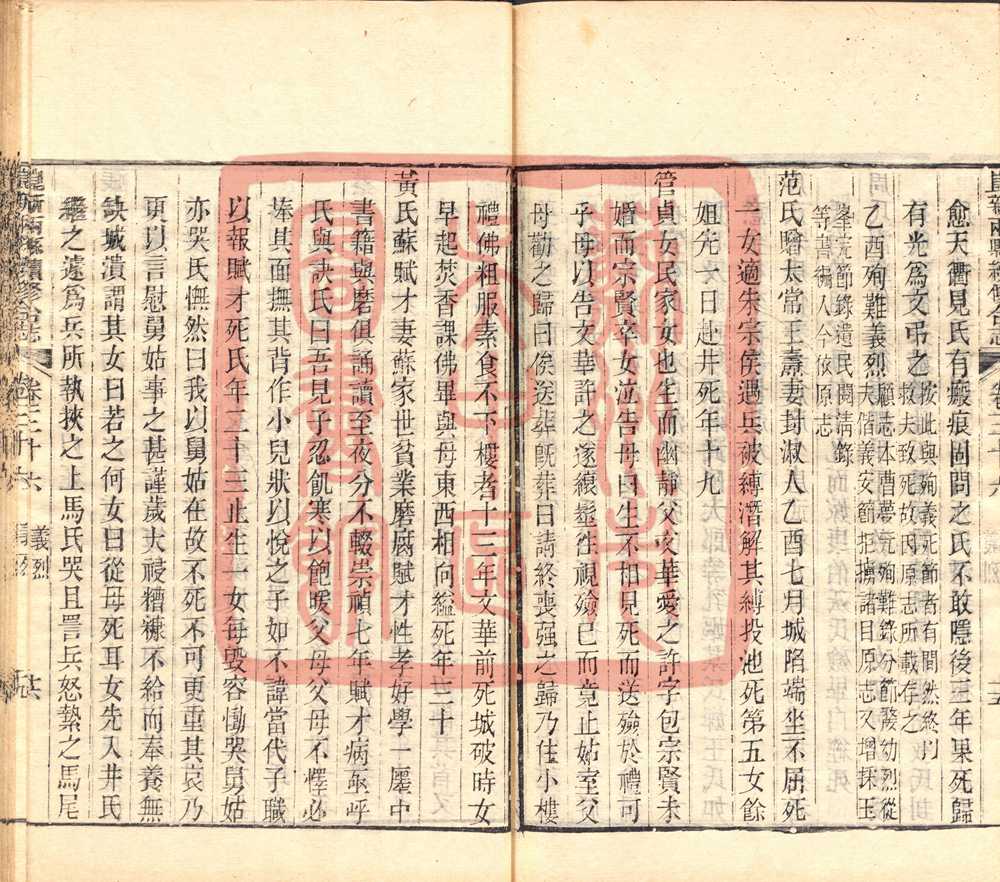 愈天衢見氏有瘢痕固問之氏不敢隱後三年果死歸
有光爲文弔之
按此與殉義死節者有間然終以
救夫致死故因原志所載存之
乙酉殉難義烈
顧志本曹夢元殉難錄分節發幼烈從
夫偕義女節拒擄諸目原志又增採王
峯完節錄遺民閣淸錄
等書徧入今依原志
范氏瞻太常王燾妻封淑人乙酉七月城陷端坐不屈死
一女適朱宗侯遇兵被縛潛解其縛投池死第五女餘
姐先一日赴井死年十九
管貞女民家女也生而幽靜父文華愛之許字包宗賢未
婚而宗賢卒女泣告母曰生不相見死而送殮於禮可
乎母以告文華許之遂縗髽往視殮已而竟止姑室父
母勸之歸曰俟送葬旣葬曰請終喪强之歸乃住小樓
禮佛粗服素食不下樓者十三年文華前死城破時女
早起焚香課佛畢與母東西相向縊死年三十
黃氏蘇賦才妻蘇家世貧業磨腐賦才性孝好學一廛中
書籍與磨俱誦讀至夜分不輟崇禎七年賦才病亟呼
氏與訣氏曰吾見子忍飢寒以飽暖父母父母不懌必
捧其面撫其背作小兒狀以悅之子如不諱當代子職
以報賦才死氏年二十三止生一女每毀容慟哭舅姑
亦哭氏憮然曰我以舅姑在故不死不可更重其哀乃
更以言慰舅姑事之甚謹歲大祲糟糠不給而奉養無
缺城潰謂其女曰若之何女曰從母死耳女先入井氏
繼之遽爲兵所執挾之上馬氏哭且詈兵怒縶之馬尾
崑新兩縣續修合志 卷三十六 義烈 六